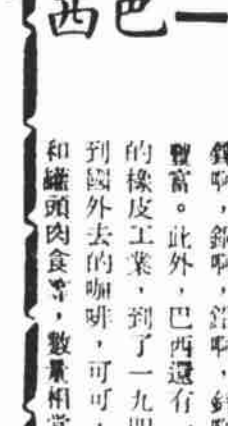 一巴西
啊，銅啊，鋁啊，
豐富。此外，巴西還有
的橡皮工業，到了一九四
到國外去的咖啡，可可，
和罐頭肉食等，數量相當